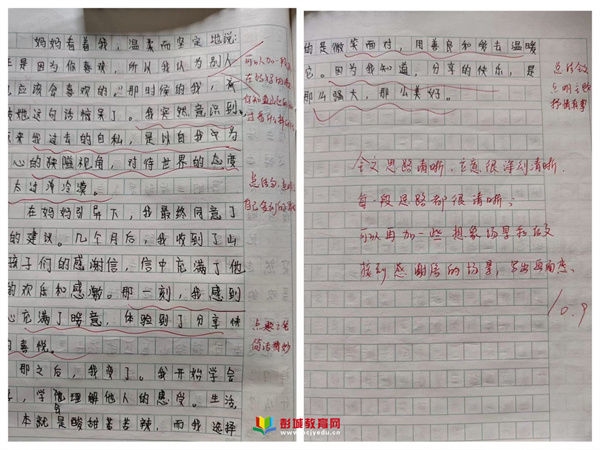 妈妈看着我，温柔而坚定地说：
是因为你喜欢，所以我认为别人
也应该会喜欢的。"那时候的我，
被她这句话糖果了。我突然意识到，
原来我过去的自私，是以自我中为
心的狭隘视角，对待世界的态度
太过淡漠。
在妈妈引导下，我最终同意了
的建议。几个月后，我收到了山
孩子们的感谢信，信中充满了他
的欢乐和感激。那一刻，我感到
心充满了暖意，体验到了分享
喜悦。
那之后，我变了。我开始学会
，学地理解他人的感受。生活
本就是酸甜苦辣，而我选择
点题之笔
简洁精妙
的是微笑面对，用善良和爱去温暖
它。因为我知道，分享的快乐，是
那么强大，那么美好。
点结全文
点明主题
抒情真挚
全文思路清晰，立意很深刻清晰
每一段思路都很清晰，
可以再加一些想象场景和在文
接到感谢信的场景，
彭城教育网
www.pcjyedu.cn